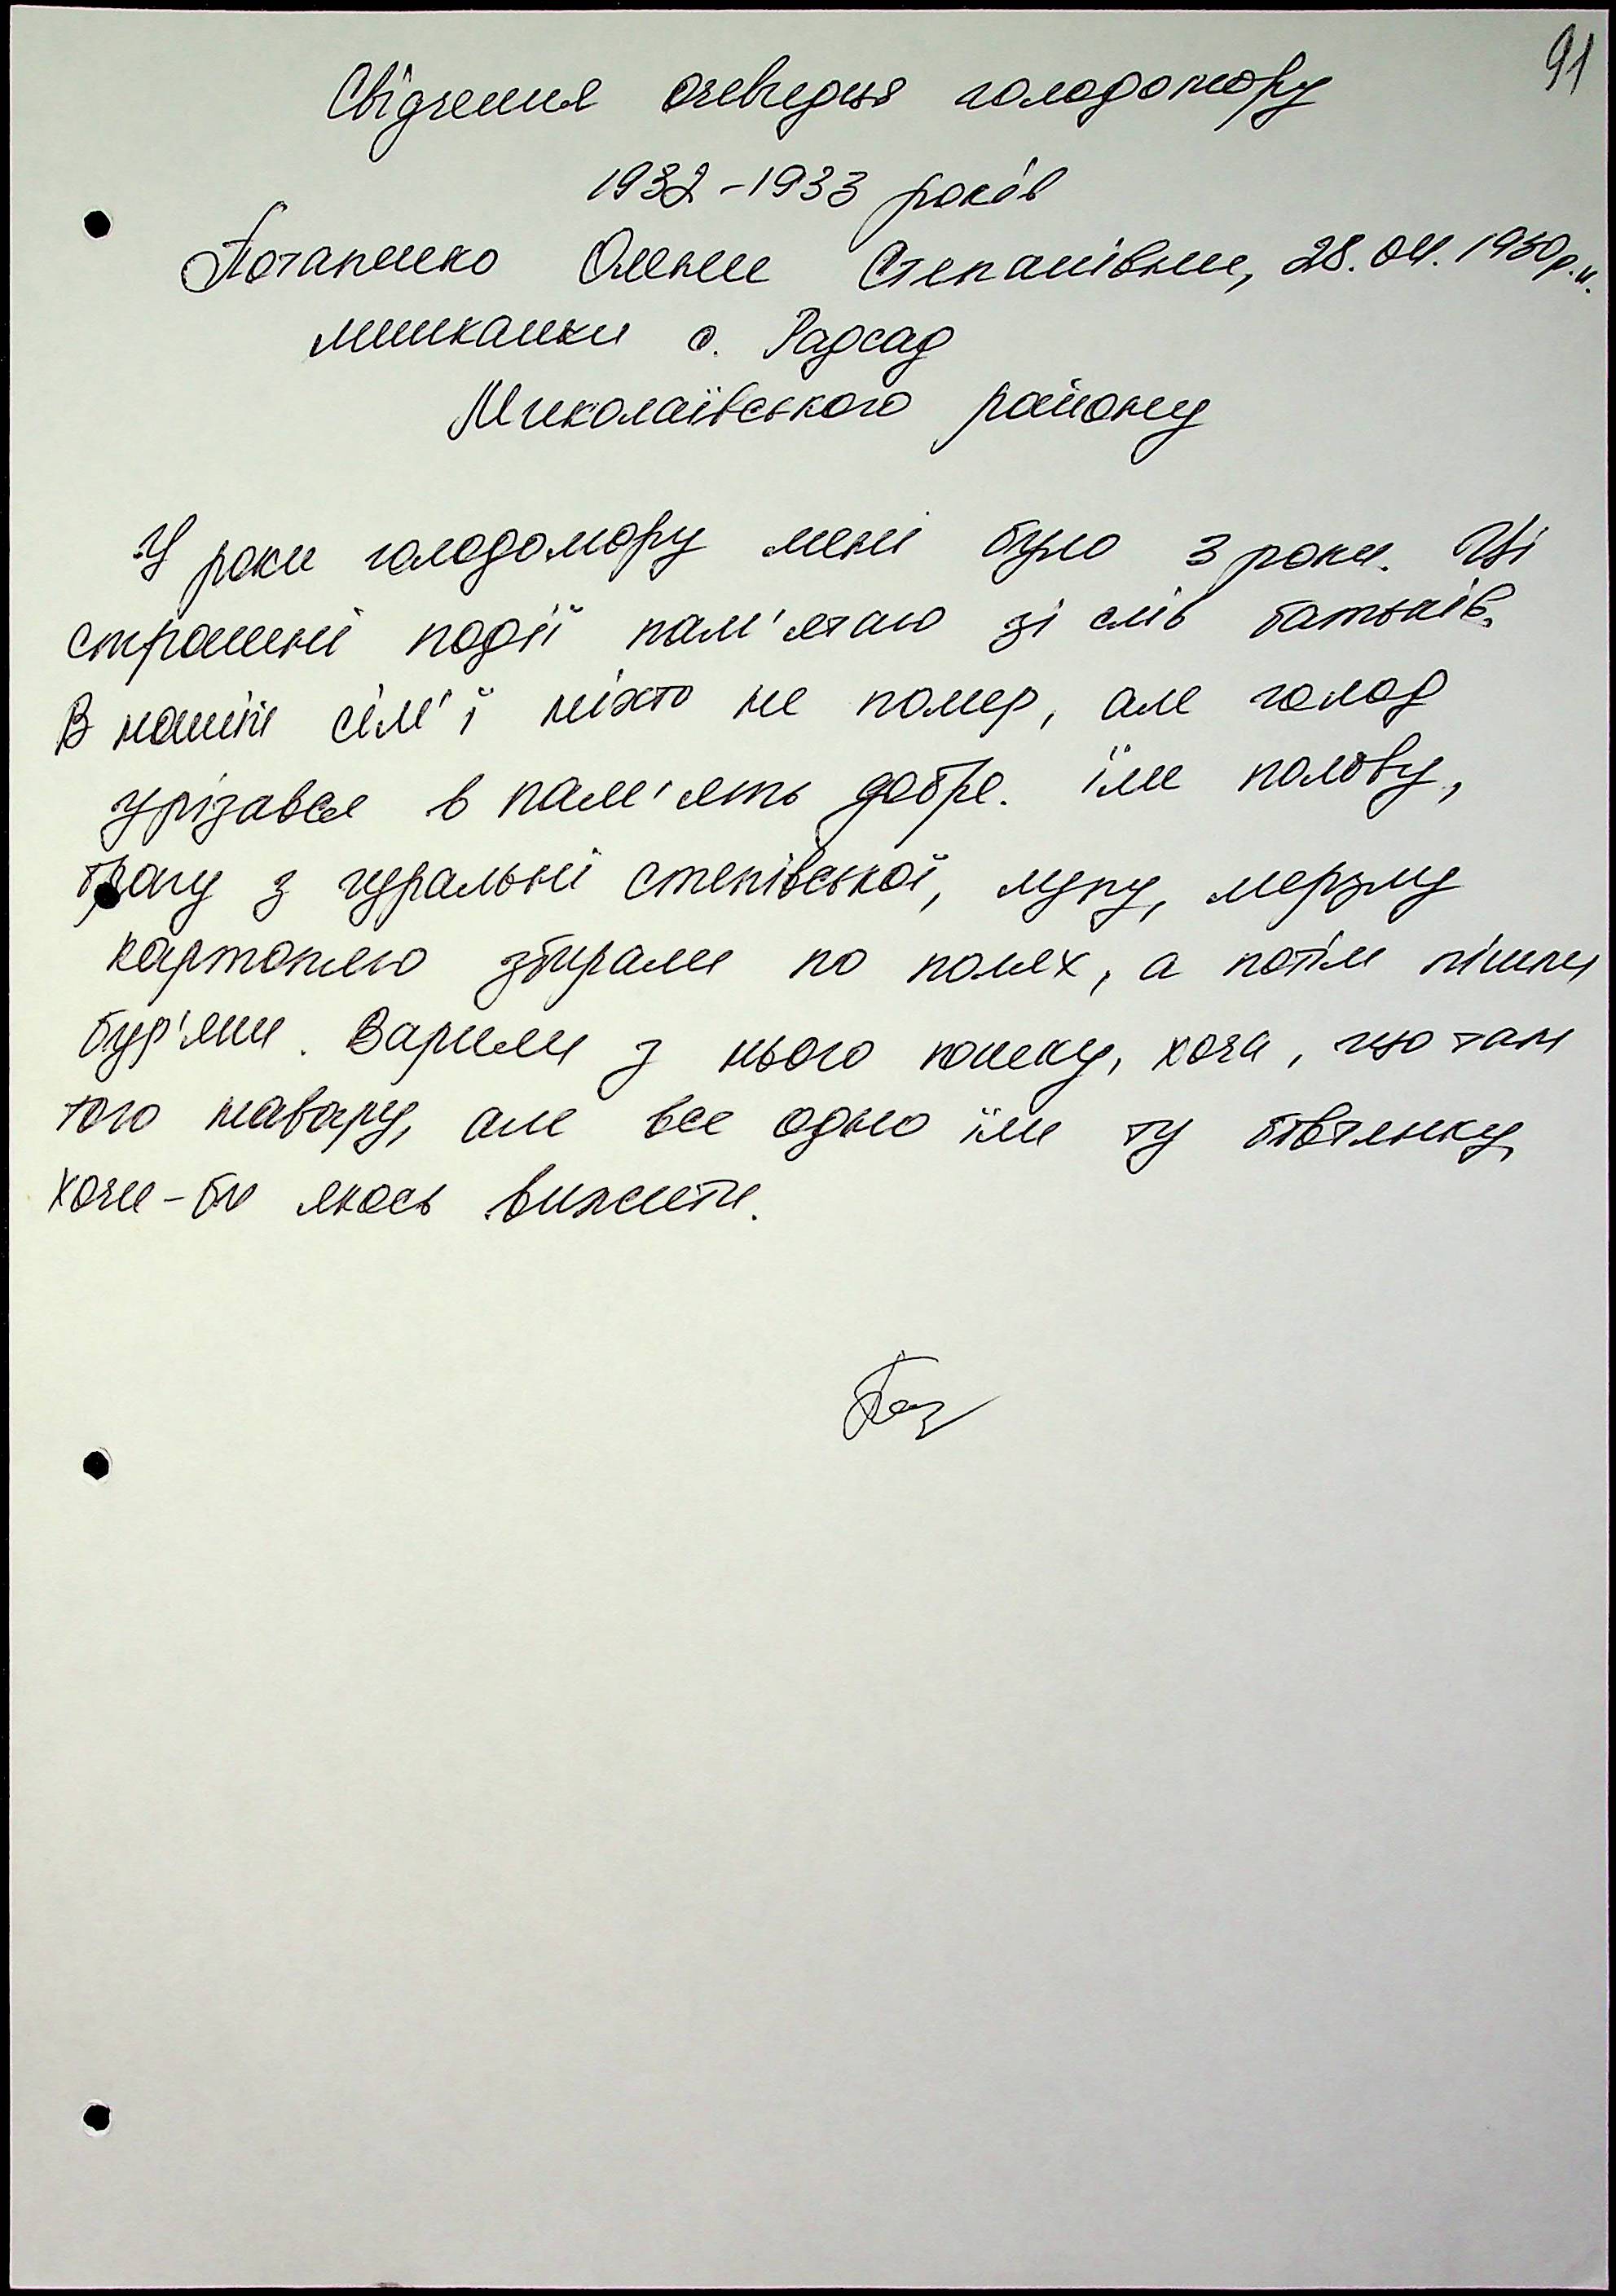 91
Свідчення очевидця голодомору
1932-1933 років
Потапенко Олени Степанівни, 28.04.1930 р.н.
мешканки с. Радсад
Миколаївського району
У роки голодомору мені було 3 роки. Ці
страшні події пам'ятаю зі слів батьків.
В нашій сім'ї ніхто не помер, але голод
урізався в пам'ять добре. їли полову,
брагу з гуральні степівської, мерзлу
картоплю збирали по полях, а потім пішли
бур'яни. Варили з нього юшку, хоча, що там
того навару, але все одно їли ту бовтянку,
хоча-би якось вижити.